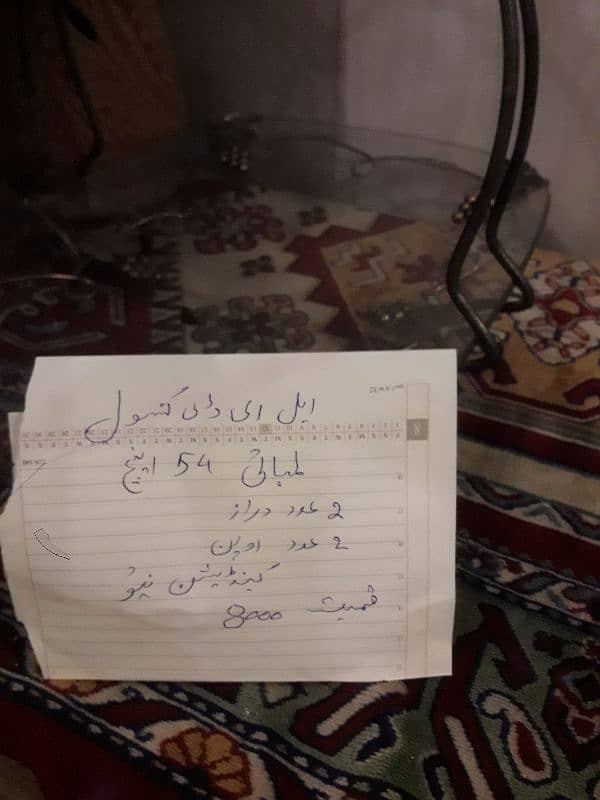 ایل ای ڈی کنسول
لمبائی 54 اینچ
2 عدد دراز
2 عدد اوپن
کینڈیشن نیو
قمیت 8000